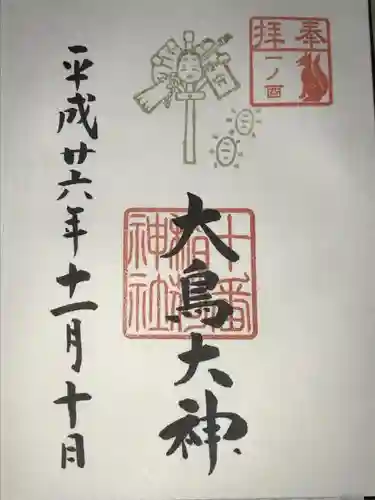 奉拝
一ノ酉
十番
稲荷
神社
大鳥大神
平成廿六年十一月十日